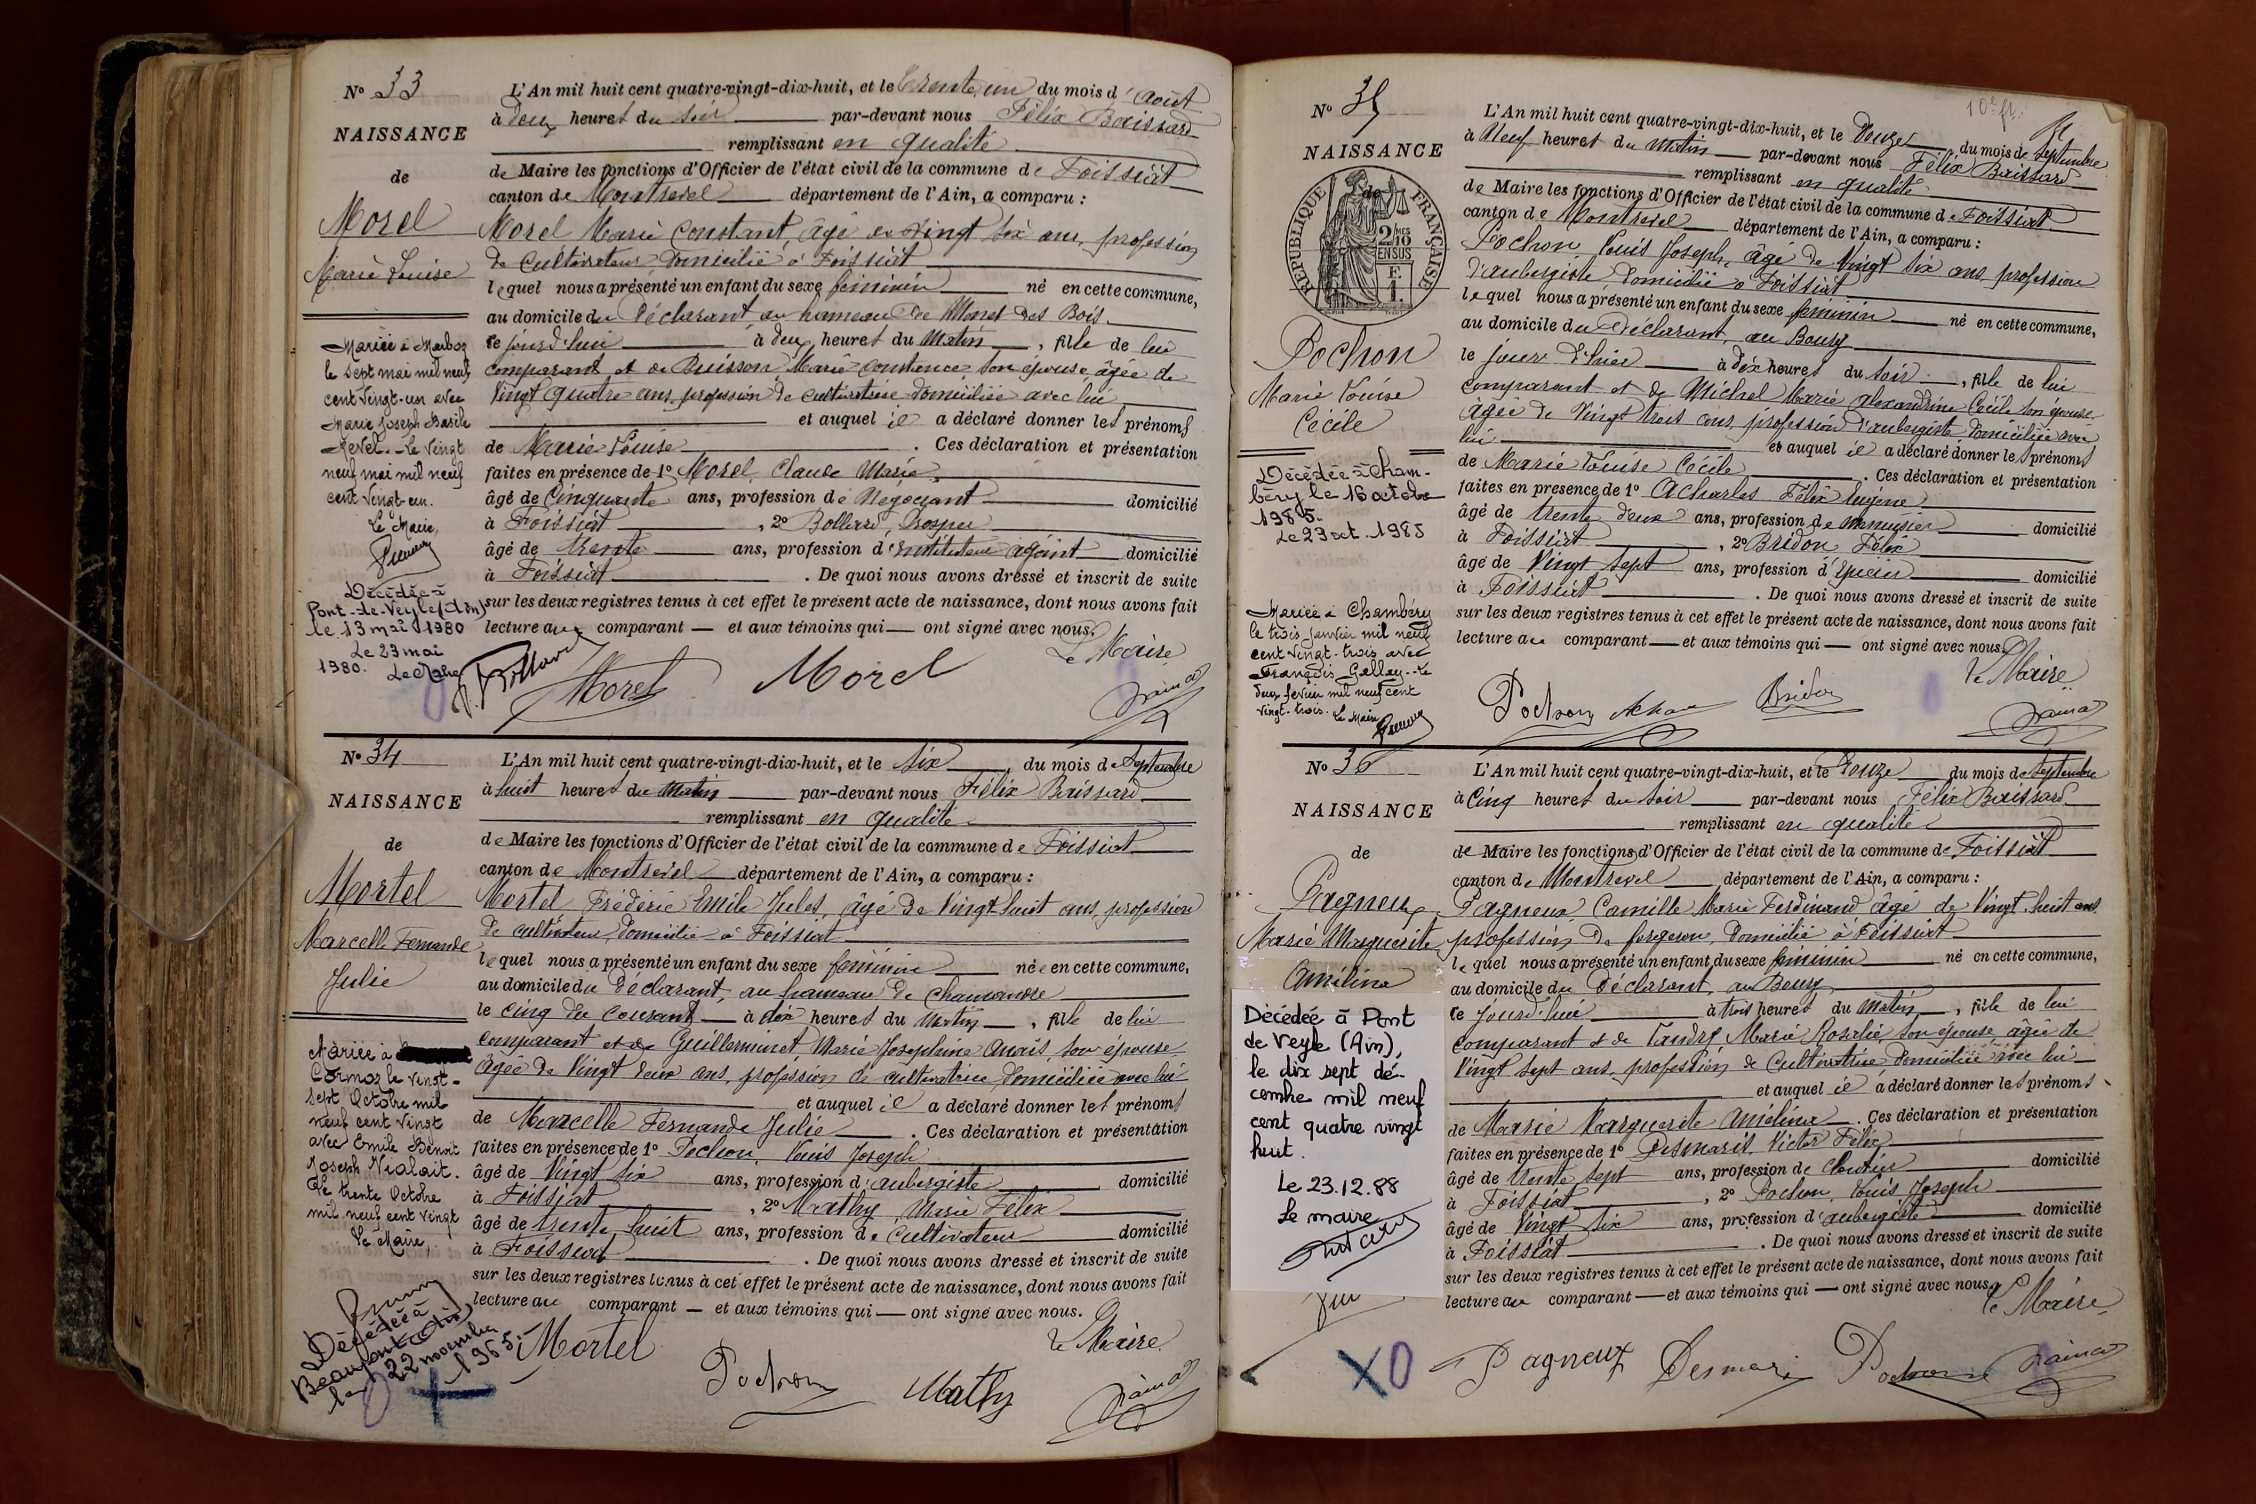 N° 33
NAISSANCE
de
Morel
Marie Louise
Mariée à Marboz
le sept mai mil neuf
cent vingt-un avec
Marie Joseph Basile
Revel. Le vingt
neuf mai mil neuf
cent vingt-un.
Le Maire,
Décédée à
Pont-de-Veyle (Ain)
le 13 mai 1980
Le 23 mai
1980. Le Maire
L'An mil huit cent quatre-vingt-dix-huit, et le trente un du mois d'août
à deux heures du soir par-devant nous Félix Baissard
remplissant en qualité
de Maire les fonctions d'Officier de l'état civil de la commune de Foissiat
canton de Montrevel département de l'Ain, a comparu :
Morel Marie Constant, âgé de vingt six ans, profession
de cultivateur domicilié à Foissiat
lequel nous a présenté un enfant du sexe féminin né en cette commune,
au domicile du déclarant, au hameau de Monet des Bois
ce jourd'hui à deux heures du matin, fille de lui
comparant et de Buisson Marie Constance son épouse âgée de
vingt quatre ans, profession de cultivatrice domiciliée avec lui
et auquel il a déclaré donner les prénoms
de Marie Louise. Ces déclaration et présentation
faites en présence de 1° Morel, Claude Marie,
âgé de cinquante ans, profession de négociant domicilié
à Foissiat, 2° Bollard, Prosper
âgé de trente ans, profession d'instituteur adjoint domicilié
à Foissiat. De quoi nous avons dressé et inscrit de suite
sur les deux registres tenus à cet effet le présent acte de naissance, dont nous avons fait
lecture au comparant — et aux témoins qui — ont signé avec nous.
Le Maire
P. Bollard Morel Morel
N° 34
NAISSANCE
de
Mortel
Marcelle Fernande
Julie
Mariée à
Cormoz le vingt-
sept Octobre mil
neuf cent vingt
avec Emile Benoit
Joseph Nialait.
Le trente Octobre
mil neuf cent vingt
Le Maire,
Décédée à
Beaupont (Ain)
le 22 novembre
1965.
L'An mil huit cent quatre-vingt-dix-huit, et le six du mois de Septembre
à huit heures du matin par-devant nous Félix Baissard
remplissant en qualité
de Maire les fonctions d'Officier de l'état civil de la commune de Foissiat
canton de Montrevel département de l'Ain, a comparu :
Mortel Frédéric Emile Jules, âgé de vingt huit ans, profession
de cultivateur, domicilié à Foissiat
lequel nous a présenté un enfant du sexe féminin née en cette commune,
au domicile du déclarant, au hameau de
le cinq du courant à dix heures du matin, fille de lui
comparant et de Guillerminet, Marie Joséphine Anaïs son épouse
âgée de vingt deux ans, profession de cultivatrice domiciliée avec lui
et auquel il a déclaré donner les prénoms
de Marcelle Fernande Julie. Ces déclaration et présentation
faites en présence de 1° Pochon, Louis Joseph
âgé de vingt six ans, profession d'aubergiste domicilié
à Foissiat, 2° Mathy Marie Félix
âgé de trente huit ans, profession de cultivateur domicilié
à Foissiat. De quoi nous avons dressé et inscrit de suite
sur les deux registres tenus à cet effet le présent acte de naissance, dont nous avons fait
lecture au comparant — et aux témoins qui — ont signé avec nous.
Le Maire.
Mortel Pochon Mathy
N° 35
NAISSANCE
de
RÉPUBLIQUE FRANÇAISE
2/10 MES
EN SUS
F.
1.
Pochon
Marie Louise
Cécile
Décédée à Cham-
béry le 16 octobre
1985.
Le 23 oct. 1985
Mariée à Chambéry
le trois janvier mil neuf
cent vingt-trois avec
François Gallay. Le
deux février mil neuf cent
vingt-trois. Le Maire
L'An mil huit cent quatre-vingt-dix-huit, et le douze du mois de septembre
à neuf heures du matin par-devant nous Félix Baissard
remplissant en qualité
de Maire les fonctions d'Officier de l'état civil de la commune de Foissiat
canton de Montrevel département de l'Ain, a comparu :
Pochon Louis Joseph, âgé de vingt six ans, profession
d'aubergiste domicilié à Foissiat
lequel nous a présenté un enfant du sexe féminin né en cette commune,
au domicile du déclarant, au Bourg
le jour d'hier à dix heures du soir, fille de lui
comparant et de Michel Marie Alexandrine Cécile son épouse
âgée de vingt trois ans, profession d'aubergiste domiciliée avec
lui et auquel il a déclaré donner les prénoms
de Marie Louise Cécile. Ces déclaration et présentation
faites en présence de 1° Acharles Félix Eugène
âgé de trente deux ans, profession de menuisier domicilié
à Foissiat, 2° Bridon Félix
âgé de vingt sept ans, profession d'épicier domicilié
à Foissiat. De quoi nous avons dressé et inscrit de suite
sur les deux registres tenus à cet effet le présent acte de naissance, dont nous avons fait
lecture au comparant — et aux témoins qui — ont signé avec nous.
Le Maire
Pochon Bridon
N° 36
NAISSANCE
de
Pagneux
Marie Marguerite
Amélina
Décédée à Pont
de Veyle (Ain),
le dix sept dé-
cembre mil neuf
cent quatre vingt
huit.
Le 23.12.88
Le maire
L'An mil huit cent quatre-vingt-dix-huit, et le douze du mois de septembre
à cinq heures du soir par-devant nous Félix Baissard
remplissant en qualité
de Maire les fonctions d'Officier de l'état civil de la commune de Foissiat
canton de Montrevel département de l'Ain, a comparu :
Pagneux, Camille Marie Ferdinand âgé de vingt-huit ans
profession de forgeron, domicilié à Foissiat
lequel nous a présenté un enfant du sexe féminin né en cette commune,
au domicile du déclarant, au Bourg
ce jourd'hui à trois heures du matin, fille de lui
comparant & de Tandry Marie Rosalie, son épouse âgée de
vingt sept ans, profession de cultivatrice domiciliée avec lui
et auquel il a déclaré donner les prénoms
de Marie Marguerite Amélina. Ces déclaration et présentation
faites en présence de 1° Desmaris, Victor Félix
âgé de trente sept ans, profession de domicilié
à Foissiat, 2° Pochon, Louis Joseph
âgé de vingt six ans, profession d'aubergiste domicilié
à Foissiat. De quoi nous avons dressé et inscrit de suite
sur les deux registres tenus à cet effet le présent acte de naissance, dont nous avons fait
lecture au comparant — et aux témoins qui — ont signé avec nous.
Le Maire.
XO Pagneux Desmaris Pochon